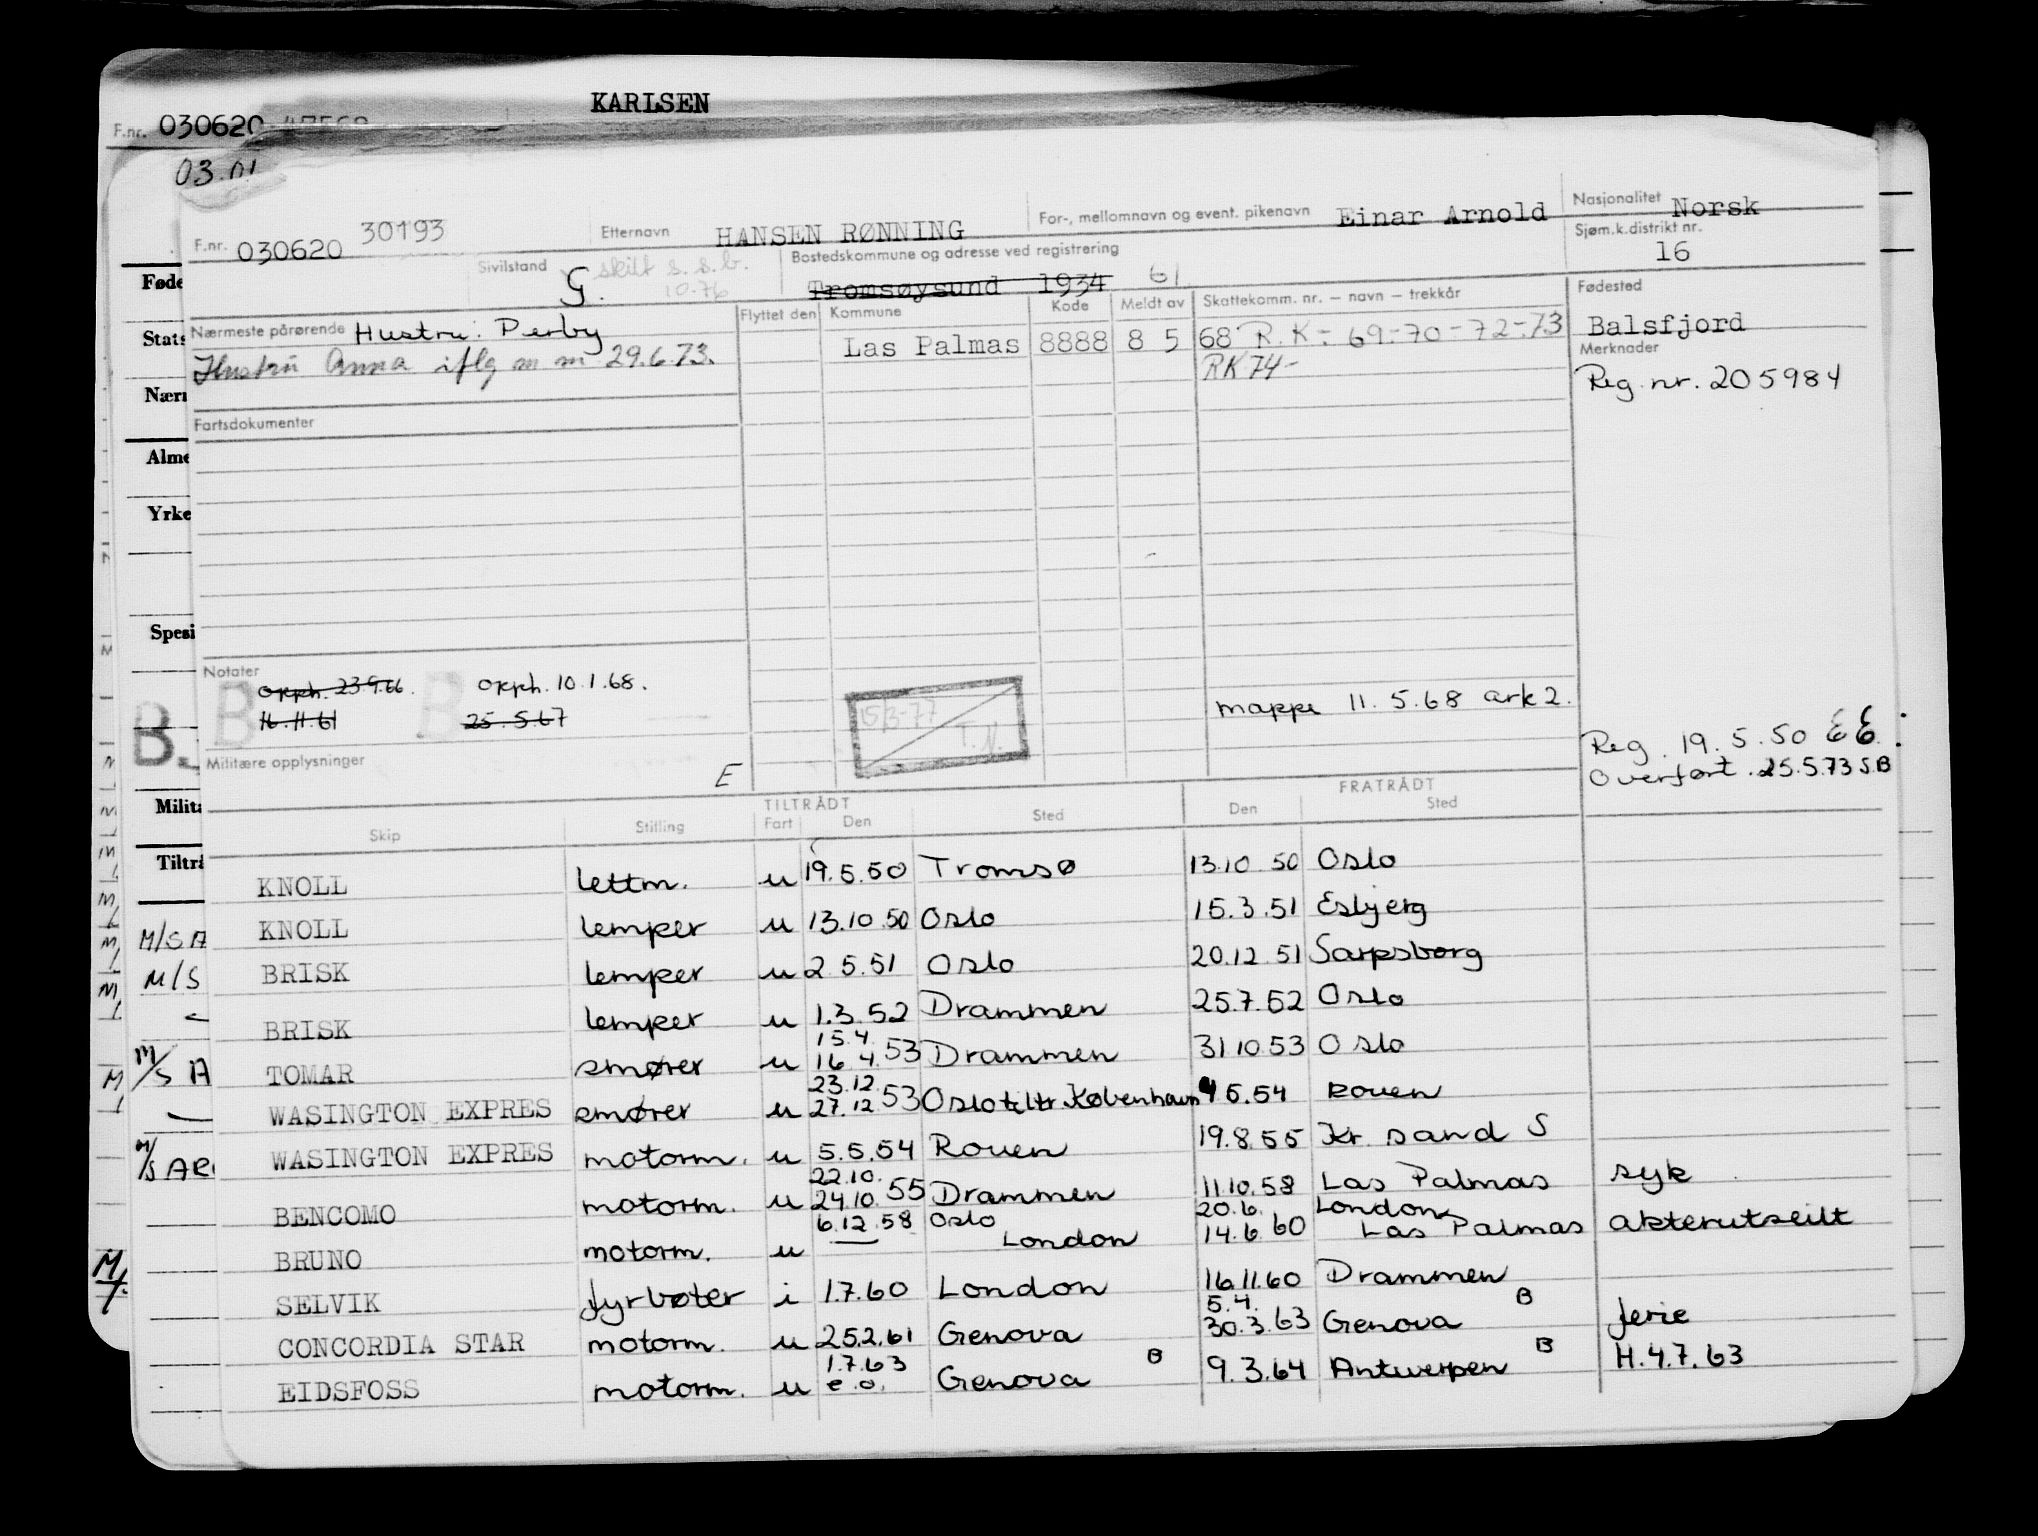 KARLSEN
F.nr. 030620
03.01
F.nr. 030620 30193 Etternavn HANSEN RØNNING For-, mellomnavn og event. pikenavn Einar Arnold Nasjonalitet Norsk
Sivilstand G. skilt s.s.b. 10.76 Bostedskommune og adresse ved registrering Tromsøysund 1934 61 Sjøm.k.distrikt nr. 16
Nærmeste pårørende Hustru: Perby Flyttet den Kommune Kode Meldt av Skattekomm. nr. – navn – trekkår Fødested
Las Palmas 8888 8 5 68 R.K-: 69-70-72-73 Balsfjord
Hustru Anna iflg m m 29.6.73. RK 74- Merknader
Reg. nr. 205984
Fartsdokumenter
Føde
Stats
Nærr
Alme
Yrke
Spesi
Notater
B B
opph. 23.9.66. opph. 10.1.68.
16.11.61 25.5.67
15/3-77 T.N.
mappe 11.5.68 ark 2.
B.
Militære opplysninger E
Reg. 19.5.50 EE
Overført. 25.5.73 S.B
Milita
Tiltrå
TILTRÅDT FRATRÅDT
Skip Stilling Fart Den Sted Den Sted
KNOLL lettm. u 19.5.50 Tromsø 13.10.50 Oslo
KNOLL lemper u 13.10.50 Oslo 15.3.51 Esbjerg
BRISK lemper u 2.5.51 Oslo 20.12.51 Sarpsborg
BRISK lemper u 1.3.52 Drammen 25.7.52 Oslo
15.4.
TOMAR smører u 16.4.53 Drammen 31.10.53 Oslo
23.12.
WASINGTON EXPRES smører u 27.12.53 Oslo tiltr. København 4.5.54 Rouen
WASINGTON EXPRES motorm. u 5.5.54 Rouen 19.8.55 Kr. sand S
22.10.
BENCOMO motorm. u 24.10.55 Drammen 11.10.58 Las Palmas syk
6.12.58 Oslo 20.6. London
BRUNO motorm. u London 14.6.60 Las Palmas akterutseilt
SELVIK fyrbøter i 1.7.60 London 16.11.60 Drammen
5.4. B
CONCORDIA STAR motorm. u 25.2.61 Genova 30.3.63 Genova ferie
1.7.63 B B
EIDSFOSS motorm. u e.o. Genova 9.3.64 Antwerpen H.4.7.63
M/S A
M/S
M/S A
M/S AR